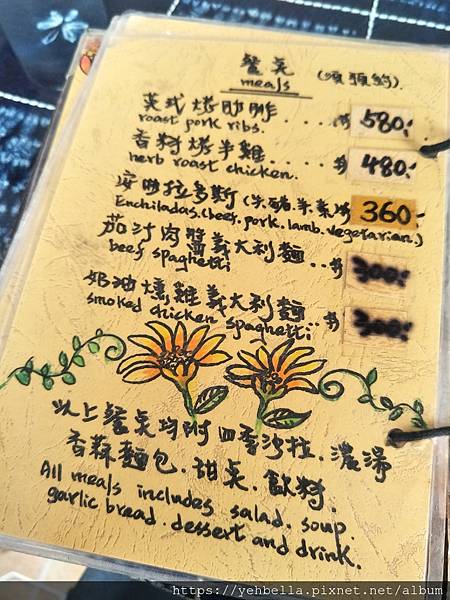 餐点 (須預約).
meals
英式烤肋排 .... $580.-
roast pork ribs.
香料烤半雞 .... $480.-
herb roast chicken.
安啦拉多斯 (牛.豬.羊.素 360.-
Enchiladas.(beef.pork.lamb.vegetarian.)
茄汁肉醬義大利麵 .. $300.-
beef spaghetti
奶油燻雞義大利麵 .. $300.-
smoked chicken spaghetti
以上餐点均附四季沙拉.濃湯
香蒜麵包.甜点.飲料.
All meals includes salad. soup.
garlic bread. dessert and drink.
https://yehbella.pixnet.net/album